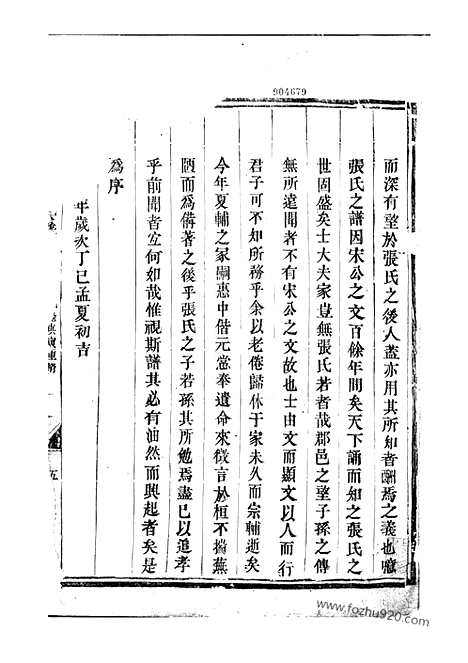 904679
而深有望於張氏之後人蓋亦用其所知者酬焉之義也噫
張氏之譜因宋公之文百餘年間矣天下誦而知之張氏之
世固盛矣士大夫家豈無張氏若者哉郡邑之望子孫之傳
無所遺聞者不有宋公之文故也士由文而顯文以人而行
君子可不知所務乎余以老倦歸休于家未久而宗輔逝矣
今年夏輔之家嗣惠中偕元嵓奉遺命來徵言於桓不揣蕪
陋而為備著之後乎張氏之子若孫其所勉焉盡已以追孝
乎前聞者宜何如哉惟視斯譜其必有油然而興起者矣是
為序
年歲次丁巳孟夏初吉
五
www.fozhu920.com